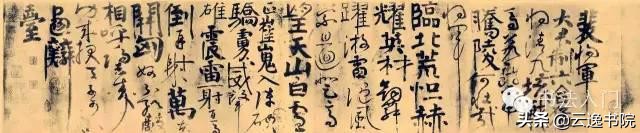 裴將軍
大君制六
合猛將清九垓
戰馬若龍虎
騰陵何壯哉
將軍
臨北荒烜赫
耀英材劍舞
躍游雷隨風
縈且迴登高
望天山白雪
正崔嵬入陣破
驕虜威聲
雄震雷一射百馬
倒再射萬夫
開匈奴不敢敵
相呼歸去
來功成報天子
臺
书法入门
头条 @云逸书院